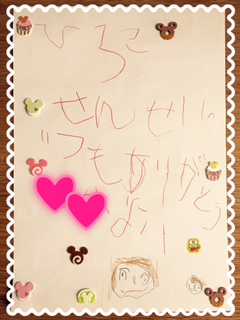 ひろこ
せんせい
いつもありがとう
よ!